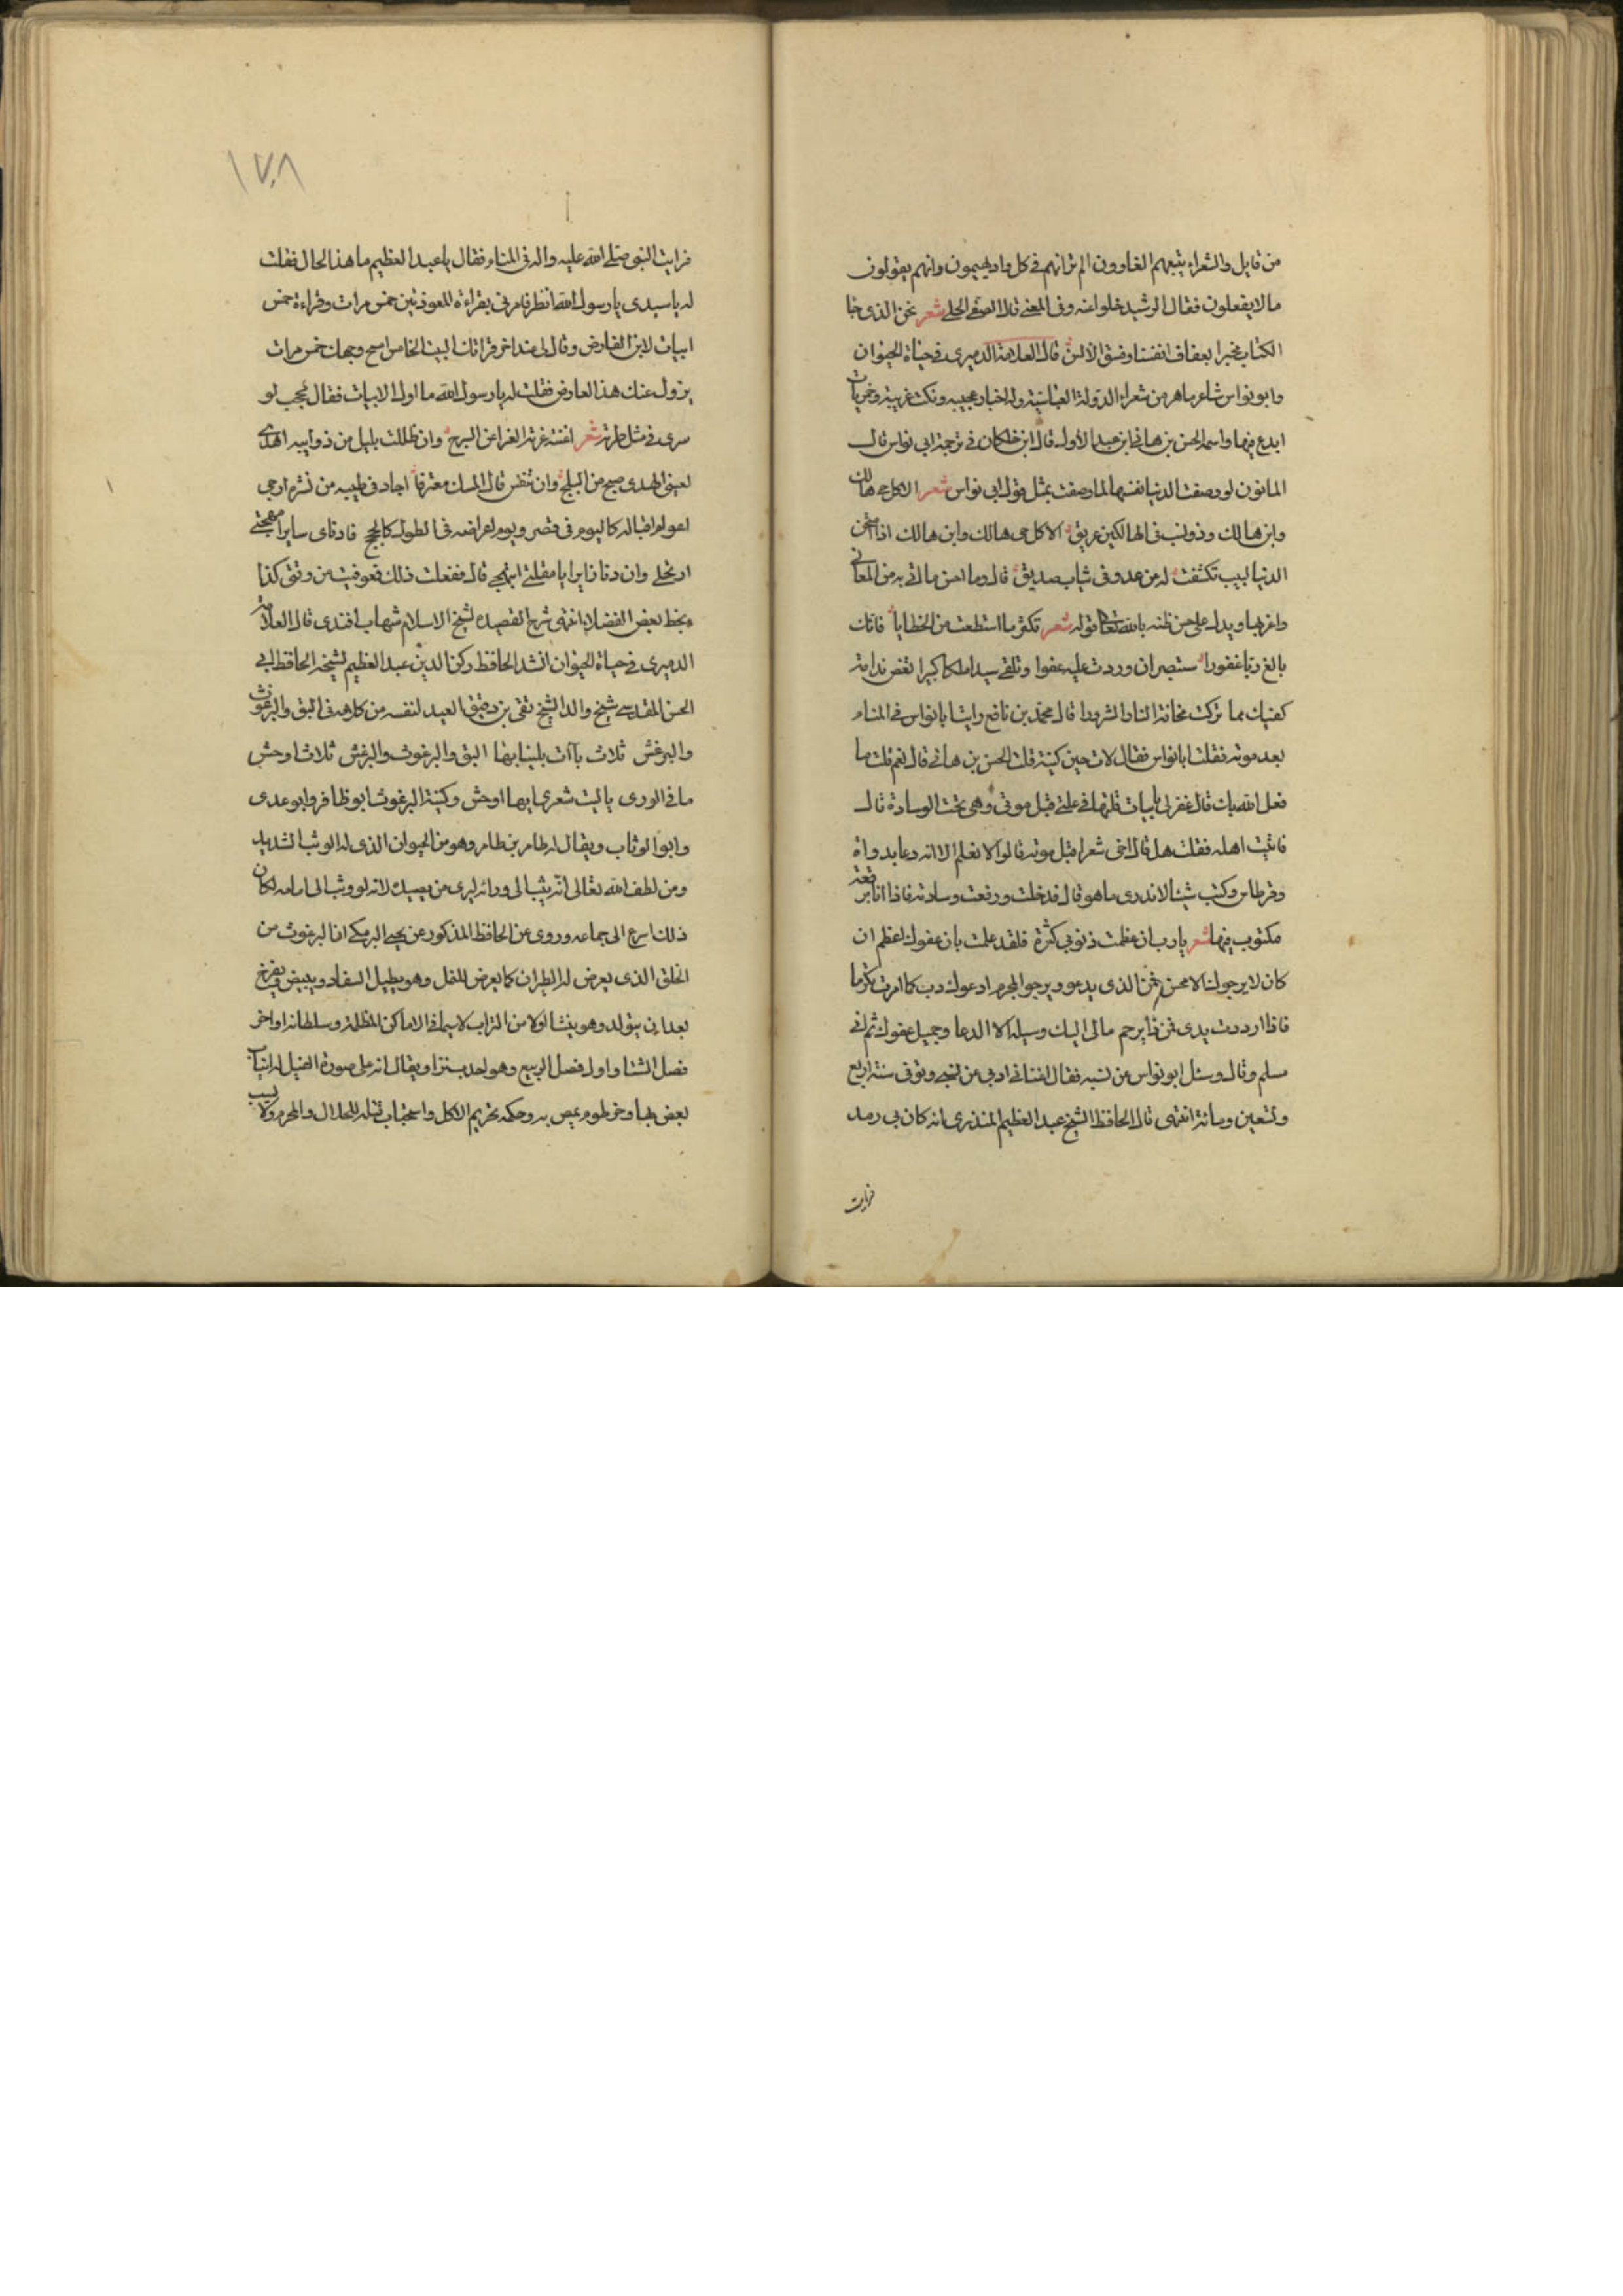 من قايل والشعراء يتبعهم الغاوون الم تر انهم في كل واد يهيمون وانهم يقولون
ما لا يفعلون فقال الرشيد خلوا عنه وفي المعنى قال الصفي الحلي شعر نحن الذي جا
الكتاب مخبرا بعفاف انفسنا وفسق الالسن قال العلامة الدميري في حياة الحيوان
وابو نواس شاعر ماهر من شعراء الدولة العباسية وله اخبار عجيبه ونكت غريبة وخمريات
ابدع فيها واسمه الحسن بن هاني ابن عبد الاول قال ابن خلكان في ترجمة ابي نواس قال
المانون لو وصفت الدنيا نفسها لما وصفت بمثل قول ابي نواس شعر الا كل حي هالك
وابن هالك وذو نسب في الهالكين عريق الا كل حي هالك وابن هالك اذا امتحن
الدنيا لبيب تكشفت له من عدو في ثياب صديق قال وما احسن ما اتى به من المعاني
واغربها ويدل على حسن ظنه بالله تعالى قوله شعر تكثر ما استطعت من الخطايا فانك
بالغ ربا غفورا ستبصر ان وردت عليه عفوا وتلقى سيدا ملكا كبيرا تعض ندامة
كفيك مما تركت مخافة النار الشرورا قال محمد بن نافع رايت ابا نواس في المنام
بعد موته فقلت ابا نواس فقال لات حين كنية قلت الحسن بن هاني قال نعم قلت ما
فعل الله بك قال غفر لي بابيات قلتها في علتي قبل موتي وهي تحت الوسادة قال
فاتيت اهله فقلت هل قال اخي شعرا قبل موته قالوا لا نعلم الا انه دعا بدواة
وقرطاس وكتب شيئا لا ندري ما هو قال فدخلت ورفعت وسادته فاذا انا برقعة
مكتوب فيها شعر يا رب ان عظمت ذنوبي كثرة فلقد علمت بان عفوك اعظم ان
كان لا يرجوك الا محسن فمن الذي يدعو ويرجو المجرم ادعوك رب كما امرت تكرما
فاذا رددت يدي فمن ذا يرحم مالي اليك وسيلة الا الدعا وجميل عفوك ثم اني
مسلم وقال وسئل ابو نواس عن نسبه فقال اغناني ادبي عن نسبي وتوفي سنة اربع
وتسعين ومائة انتهى قال الحافظ الشيخ عبد العظيم المنذري انه كان بي رمد
فرايت
١٧٨
فرايت النبي صلى الله عليه واله في المنام فقال يا عبد العظيم ما هذا الحال فقلت
له يا سيدي يا رسول الله انظر فامرني بقراءة المعوذتين خمس مرات وقراءة خمس
ابيات لابن الفارض وقال لي عند اخر قراتك البيت الخامس امسح وجهك خمس مرات
يزول عنك هذا العارض فقلت له يا رسول الله ما اول الابيات فقال عجب لو
سرى في مثل طرته شعر اغنته غرته الغرا عن السرج وان ظللت بليل من ذوايبه اهدى
لعيني الهدى صبح من البلج وان تنفس قال المسك معترفا اجاد في طيبه من نشره ارجي
اعوام اقباله كاليوم في قصر ويوم اعراضه في الطول كالحجج فان ناى سايرا مهجتي
ارتحلي وان دنا زايرا يا مقلتي ابتهجي قال ففعلت ذلك فعوفيت من وقتي كذا
بخط بعض الفضلاء انتهى شرح القصيده لشيخ الاسلام شهاب افندى قال العلامة
الدميري في حياة الحيوان انشد الحافظ ركن الدين عبد العظيم لشيخه الحافظ ابي
الحسن المقدسي شيخ والد الشيخ تقي بن دقيق العيد لنفسه من كلامه في البق والبرغوث
والبرغش ثلاث باآت بلينا بها البق والبرغوث والبرغش ثلاث اوحش
ما في الورى يا ليت شعري ايها اوحش وكنية البرغوث ابو ظافر وابو عدي
وابو الوثاب ويقال له طامر بن طامر وهو من الحيوان الذي له الوثب الشديد
ومن لطف الله تعالى انه يثب الى ورائه ليرى من يصيده لانه لو وثب الى امامه لكان
ذلك اسرع الى حمامه وروى عن الحافظ المذكور عن يحيى البرمكي ان البرغوث من
الخلق الذي يعرض له الطيران كما يعرض للنمل وهو يطيل السفاد ويبيض ويفرخ
بعد ان يتولد وهو ينشا اولا من التراب لا سيما في الاماكن المظلمة وسلطانه اواخر
فصل الشتا واول فصل الربيع وهو احدب نزا ويقال انه على صورة الفيل له انياب
يعض بها وخرطوم يمص به وحكمه تحريم الاكل واستحباب قتله للحلال والمحرم ولا يسب